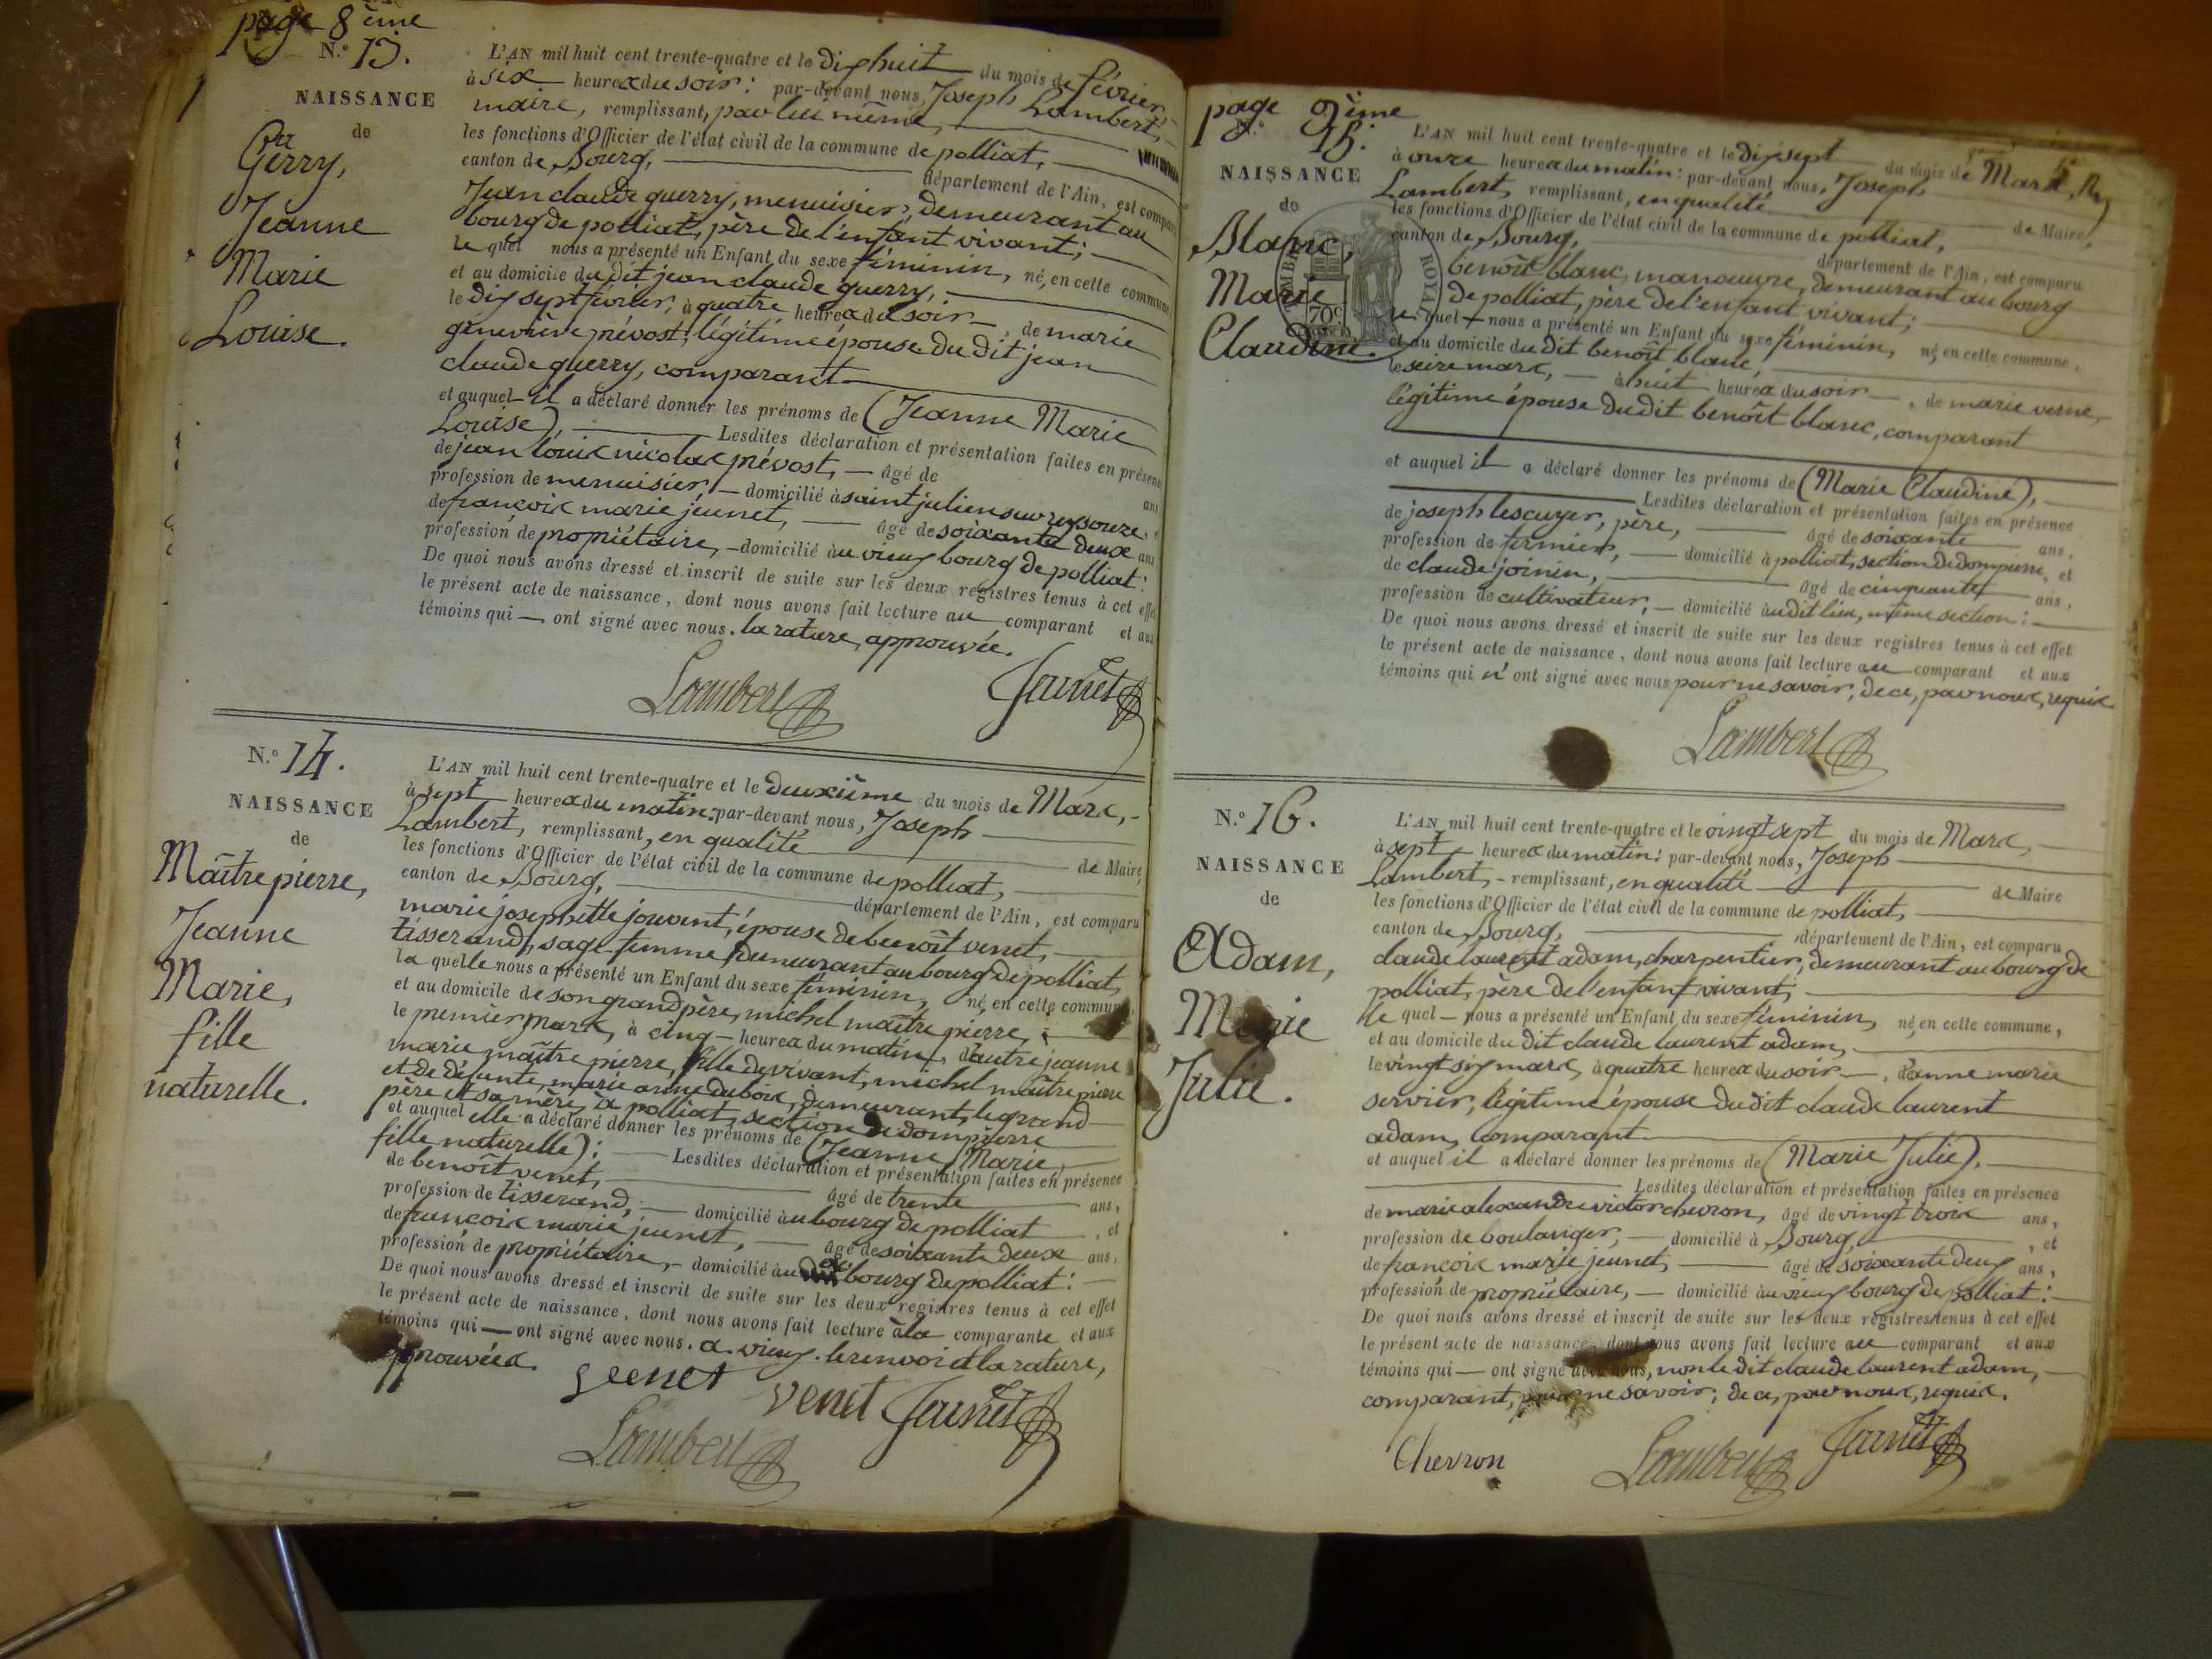 page 8ème
N.º 13.
NAISSANCE
de
Gerry,
Jeanne
Marie
Louise.
L'AN mil huit cent trente-quatre et le dix huit du mois de février
à six heures du soir : par-devant nous, Joseph Lambert,
maire, remplissant, par lui même,
les fonctions d'Officier de l'état civil de la commune de polliat,
canton de Bourg, département de l'Ain, est comparu
Jean claude guerry, menuisier, demeurant au
bourg de polliat, père de l'enfant vivant ;
le quel nous a présenté un Enfant du sexe féminin, né, en cette commune
et au domicile du dit jean claude guerry,
le dix sept février, à quatre heures du soir, de marie
geneviève prévost, légitime épouse du dit jean
claude guerry, comparant
et auquel il a déclaré donner les prénoms de (Jeanne Marie
Louise), Lesdites déclaration et présentation faites en présence
de jean louis nicolas prévost, âgé de ans
profession de menuisier, domicilié à saint julien sur reyssouze,
de françois marie jeunet, âgé de soixante deux ans
profession de propriétaire, domicilié au vieux bourg de polliat :
De quoi nous avons dressé et inscrit de suite sur les deux registres tenus à cet effet
le présent acte de naissance, dont nous avons fait lecture au comparant et aux
témoins qui ont signé avec nous. la rature, approuvée.
Lambert Jeunet
N.º 14.
NAISSANCE
de
Maître pierre,
Jeanne
Marie,
fille
naturelle.
L'AN mil huit cent trente-quatre et le deuxième du mois de Mars,
à sept heures du matin : par-devant nous, Joseph
Lambert, remplissant, en qualité de Maire,
les fonctions d'Officier de l'état civil de la commune de polliat,
canton de Bourg, département de l'Ain, est comparu
marie josephette jouvent, épouse de benoît venet,
tisserand, sage-femme, demeurant au bourg de polliat,
la quelle nous a présenté un Enfant du sexe féminin, né, en cette commune
et au domicile de son grand père, michel maître pierre,
le premier mars, à cinq heures du matin, d'autre jeanne
marie maître pierre, fille de vivant, michel maître pierre
et de défunte, marie anne dubois, demeurant, le grand
père et sa mère, à polliat, section de dompierre
et auquel elle a déclaré donner les prénoms de (Jeanne Marie,
fille naturelle) : Lesdites déclaration et présentation faites en présence
de benoît venet, âgé de trente ans,
profession de tisserand, domicilié au bourg de polliat, et
de françois marie jeunet, âgé de soixante deux ans,
profession de propriétaire, domicilié au bourg de polliat :
De quoi nous avons dressé et inscrit de suite sur les deux registres tenus à cet effet
le présent acte de naissance, dont nous avons fait lecture à la comparante et aux
témoins qui ont signé avec nous. a. vieux. le renvoi et la rature,
approuvées.
venet Jeunet
Lambert
page 9ème
N.º 15.
NAISSANCE
de
Blanc,
Marie
Claudine.
L'AN mil huit cent trente-quatre et le dix sept du mois de Mars,
à onze heures du matin : par-devant nous, Joseph
Lambert, remplissant, en qualité de Maire,
les fonctions d'Officier de l'état civil de la commune de polliat,
canton de Bourg, département de l'Ain, est comparu
benoît blanc, manœuvre, demeurant au bourg
de polliat, père de l'enfant vivant ;
le quel nous a présenté un Enfant du sexe féminin, né, en cette commune,
et au domicile du dit benoît blanc,
le seize mars, à huit heures du soir, de marie verne,
légitime épouse du dit benoît blanc, comparant
et auquel il a déclaré donner les prénoms de (Marie Claudine),
Lesdites déclaration et présentation faites en présence
de joseph lescuyer, père, âgé de soixante ans,
profession de fermier, domicilié à polliat, section de dompierre, et
de claude joinin, âgé de cinquante ans,
profession de cultivateur, domicilié audit lieu, même section :
De quoi nous avons dressé et inscrit de suite sur les deux registres tenus à cet effet
le présent acte de naissance, dont nous avons fait lecture au comparant et aux
témoins qui n'ont signé avec nous pour ne savoir ; de ce, par nous, requis.
Lambert
N.º 16.
NAISSANCE
de
Adam,
Marie
Julie.
L'AN mil huit cent trente-quatre et le vingt sept du mois de Mars,
à sept heures du matin : par-devant nous, Joseph
Lambert, remplissant, en qualité de Maire
les fonctions d'Officier de l'état civil de la commune de polliat,
canton de Bourg, département de l'Ain, est comparu
claude laurent adam, charpentier, demeurant au bourg de
polliat, père de l'enfant vivant ;
le quel nous a présenté un Enfant du sexe féminin, né, en cette commune,
et au domicile du dit claude laurent adam,
le vingt six mars, à quatre heures du soir, de anne marie
servier, légitime épouse du dit claude laurent
adam, comparant
et auquel il a déclaré donner les prénoms de (Marie Julie),
Lesdites déclaration et présentation faites en présence
de marie alexandre victor chevron, âgé de vingt trois ans,
profession de boulanger, domicilié à Bourg, et
de françois marie jeunet, âgé de soixante deux ans,
profession de propriétaire, domicilié au vieux bourg de polliat :
De quoi nous avons dressé et inscrit de suite sur les deux registres tenus à cet effet
le présent acte de naissance, dont nous avons fait lecture au comparant et aux
témoins qui ont signé avec nous, non le dit claude laurent adam,
comparant, pour ne savoir ; de ce, par nous, requis.
Chevron Lambert Jeunet